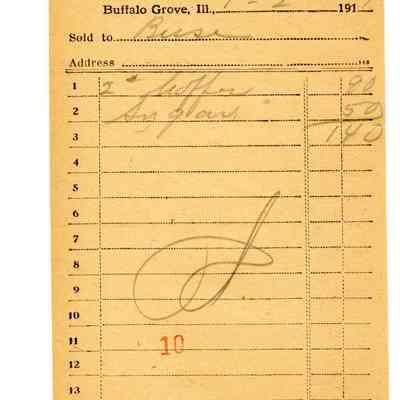 Buffalo Grove, Ill., 1-2 191
Sold to Busse
Address
1 2 Coffee 90
2 Sugar 50
3 140
4
5
6
7
8
9
10
11 10
12
13